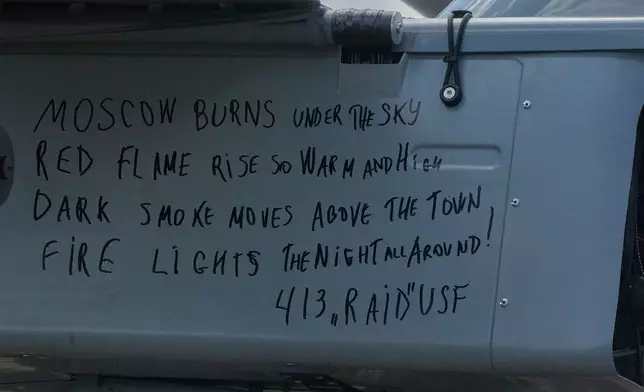 MOSCOW BURNS UNDER THE SKY
RED FLAME RISE SO WARM AND HIGH
DARK SMOKE MOVES ABOVE THE TOWN,
FIRE LIGHTS THE NIGHT ALL AROUND!
413 „RAID" USF